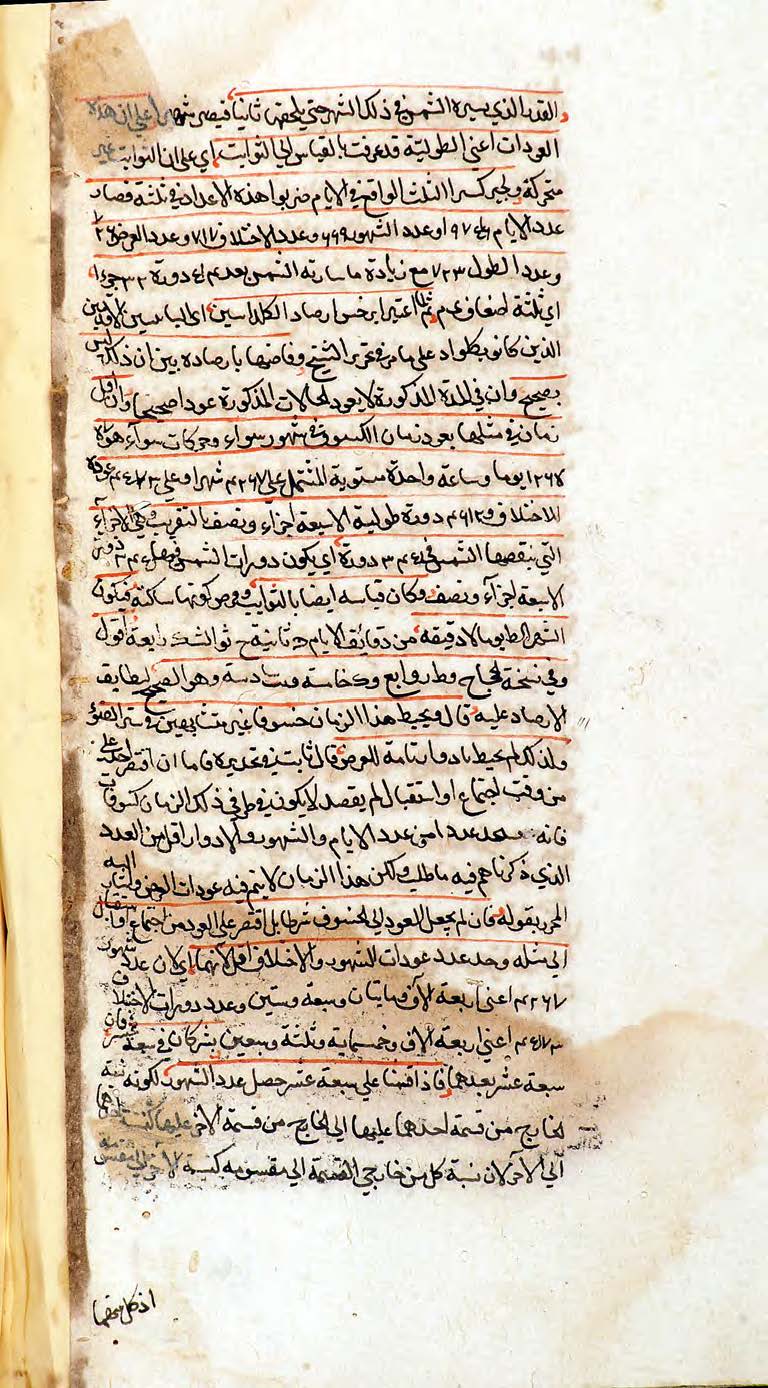 القدر الذي يسيره الشمس في ذلك الشهر حتي يلحقها ثانيا فيصير شهرا علي ان هذه
العودات اعني الطولية قد عرفت بالقياس الي الثوابت اي علي ان الثوابت غير
متحركة ولجبر كسر الثلث الواقع في الايام ضربوا هذه الاعداد في ثلثة فصار
عدد الايام وعدد الشهور ٦٦٩ وعدد الاختلاف ٧١٧ وعدد العرض
وعدد الطول ٧٢٣ مع زيادة ما سارته الشمس بعد دورة ٣٢ جزءا
اي ثلثة اضعاف ثم اعتبر ابرخس ارصاد الكلدانيين اي البابليين الاقدمين
الذين كانوا علي ما مر في تحرير الشيخ وقايسها بارصاده بين ان ذلك ليس
بصحيح وان في المدة المذكورة لا يعود الحالات المذكورة عودا صحيحا وان اقل
زمان في مثلها يعود زمان الكسوف في شهور سواء وحركات سواء هو
يوما وساعة واحدة مستوية المشتمل علي ٤٢٦٧ شهرا وعلي ٤٥٧٣ عودة
للاختلاف و ٤٦١٢ دورة طولية الا سبعة اجزاء ونصف بالتقريب وهي الاجزاء
التي ينقصها الشمس في ٣٤٥ دورة اي يكون دورات الشمس
الا سبعة اجزاء ونصف وكان قياسه ايضا بالثوابت وفرض كونها ساكنة فيكون
الشهر يوما لا دقيقه من دقايق الايام ثانية ثوالث رابعة اقول
وفي نسخة الحجاج روابع خامسة سادسة وهو الصحيح ليطابق
الارصاد عليه قال ويحيط هذا الزمان خسوفا غير متشابهين في ستر الضوء
ولذلك لم يحيط بادوار تامة للعرض قال ثابت في تحديده فاما ان اقتصر احد علي
من وقت اجتماع او استقبال لم يقصد لا يكون في طرفي ذلك الزمان كسوفات
فانه عددا من عدد الايام والشهور والادوار اقل من العدد
الذي ذكرناهم فيه ما طلب ولكن هذا الزمان لا يتم فيه عودات العرض واشار اليه
المحرر بقوله فان لم يجعل للعود الي الخسوف شرطا بل اقتصر علي العود من اجتماع او استقبال
الي مثله وجد عدد عودات الشهور والاختلاف اقل لانهما اي لان عدد شهور
٤٢٦٧ اعني اربعة الاف ومايتان وسبعة وستين وعدد دورات الاختلاف
٤٥٧٣ اعني اربعة الاف وخمسماية وثلثة وسبعين يشركان في سبعة عشر فان
سبعة عشر يعدهما فاذا قسمنا علي سبعة عشر حصل عدد الشهور لكونه نسبة
الخارج من قسمة احدهما عليها الي الخارج من قسمة الاخر عليها كنسبة احدهما
الي الاخر لان نسبة كل من خارجي القسمة الي مقسومه كنسبة الاخر الي مقسومه
اذ كل منهما